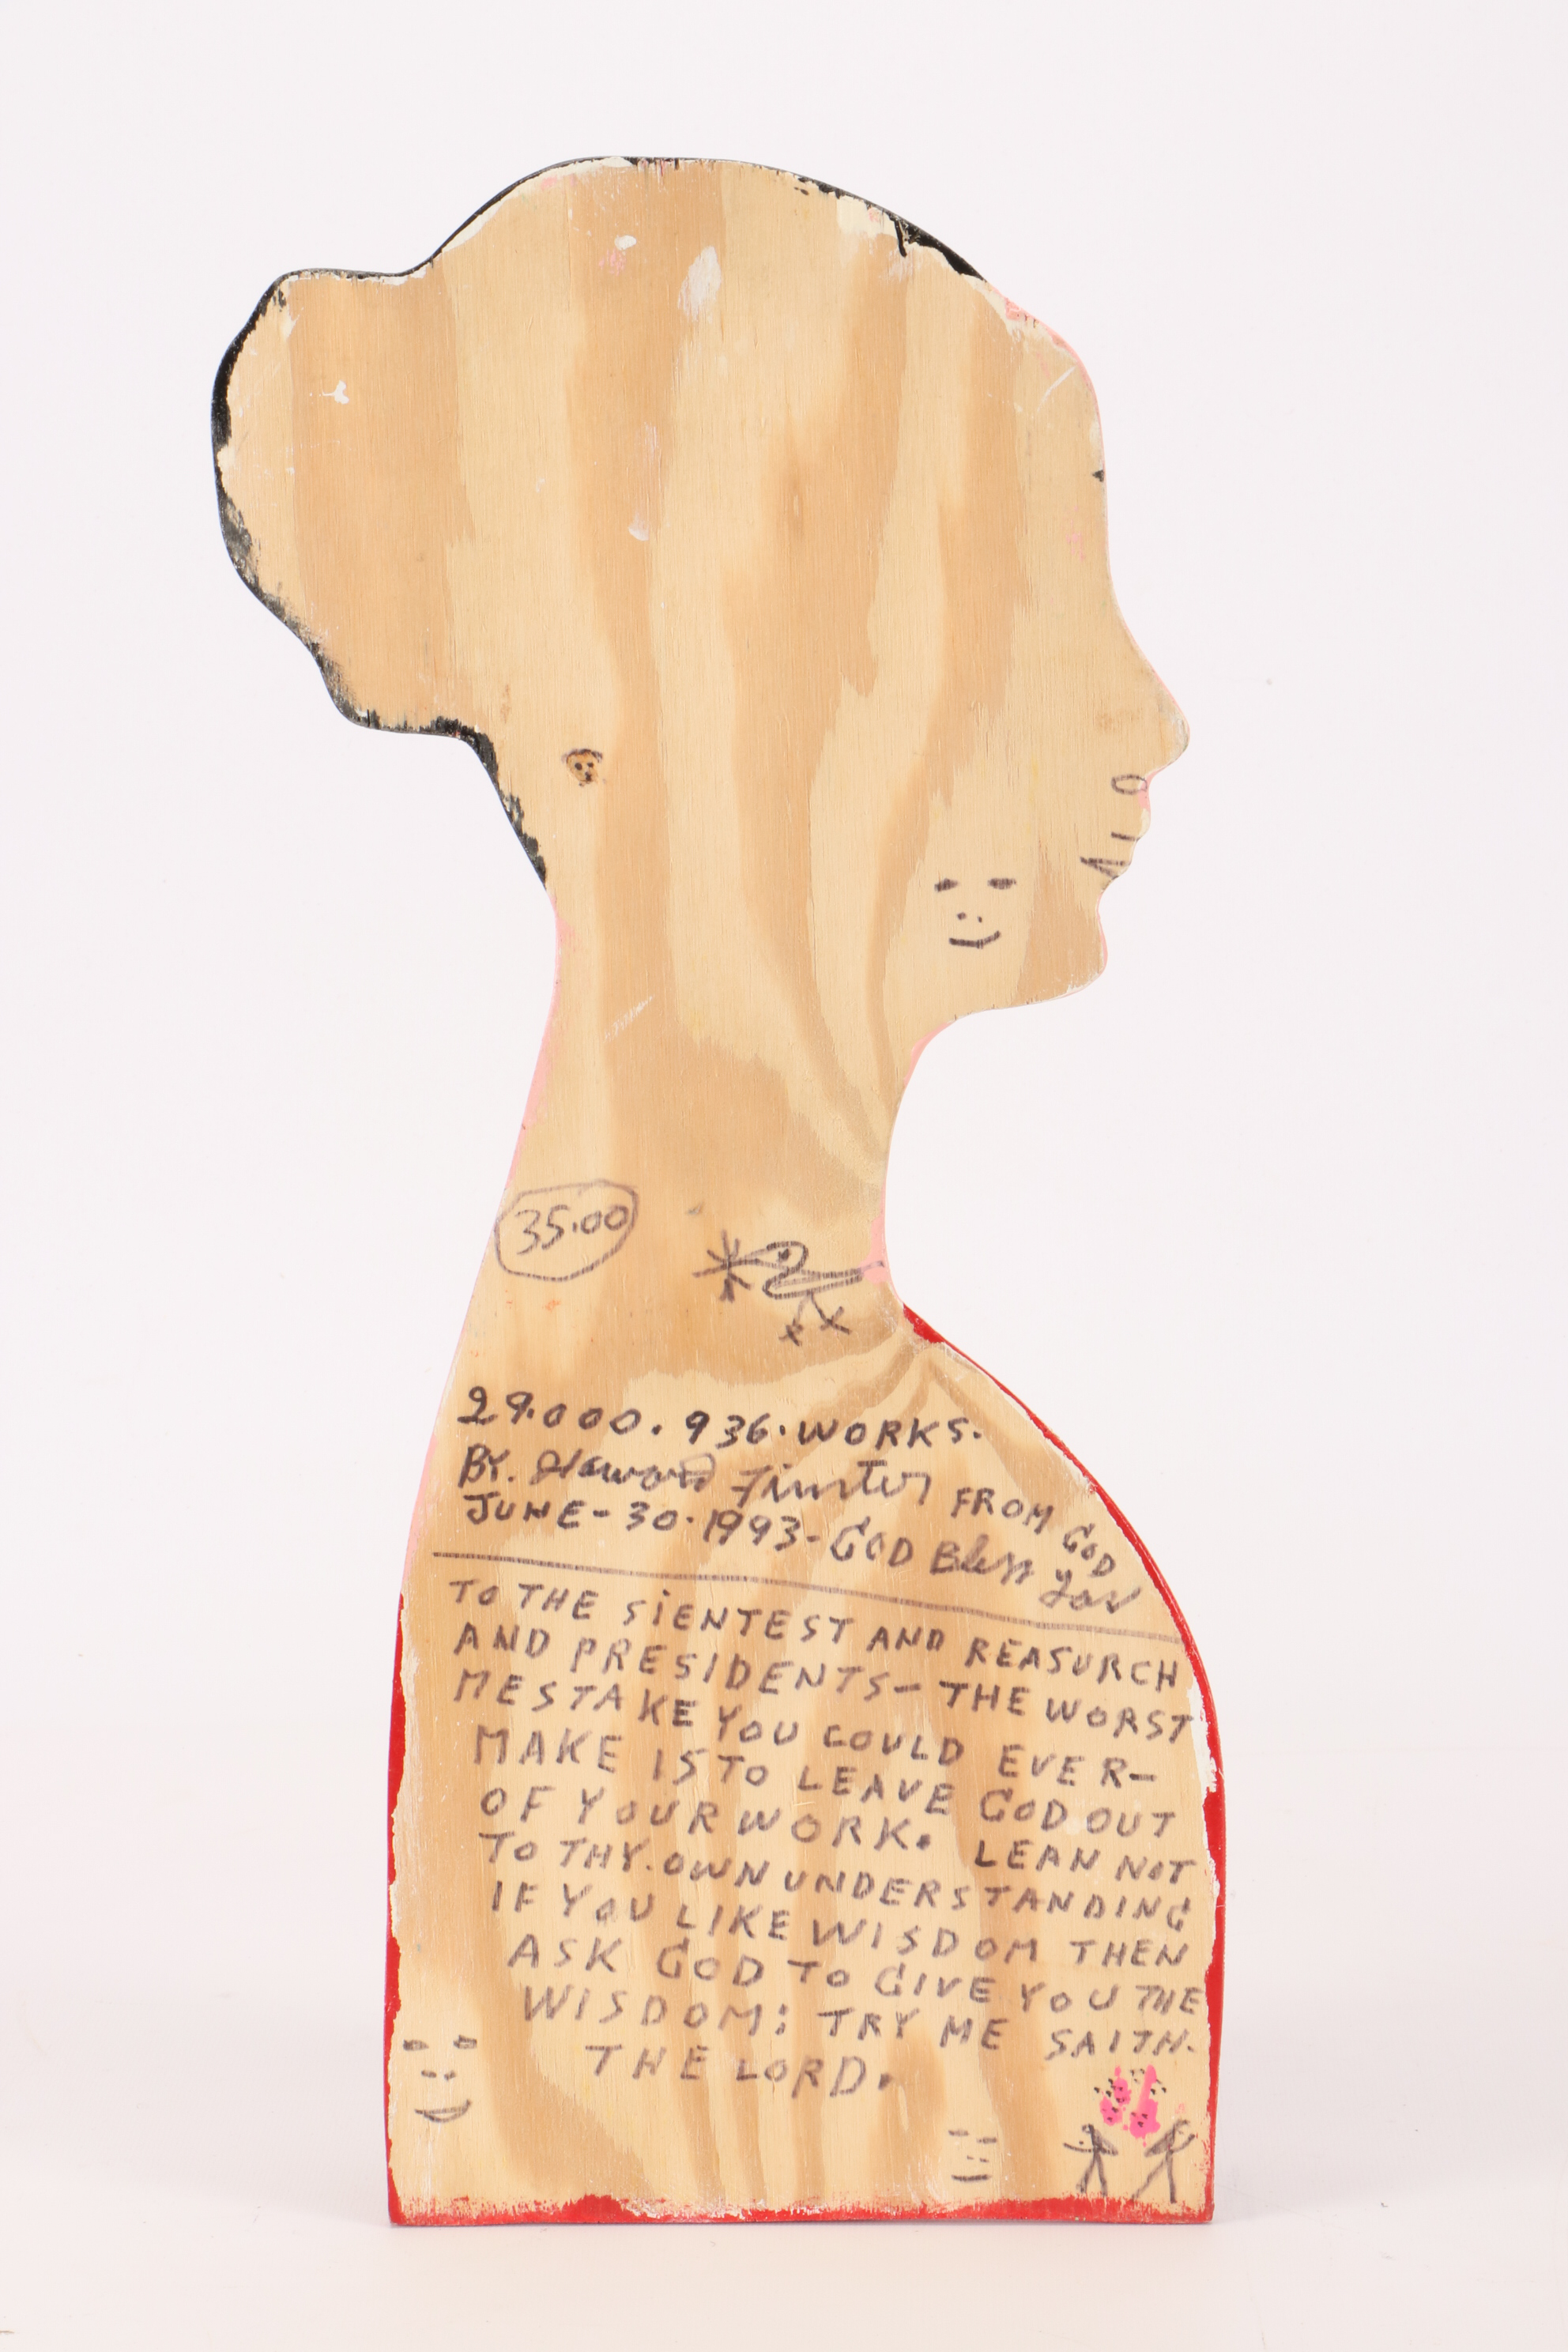 35.00
29.000.936.WORKS.
BY. Howard Finster FROM GOD
JUNE-30.1993-GOD Bless you
TO THE SIENTEST AND REASURCH
AND PRESIDENTS- THE WORST
MESTAKE YOU COULD EVER-
MAKE IS TO LEAVE GOD OUT
OF YOUR WORK. LEAN NOT
TO THY.OWN UNDERSTANDING
IF YOU LIKE WISDOM THEN
ASK GOD TO GIVE YOU THE
WISDOM: TRY ME SAITH.
THE LORD.